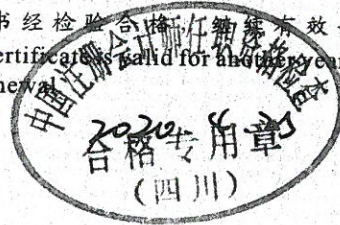 书经检验合格，继续有效一
ertificate is valid for another year
newal
中国注册会计师任职资格检查
2020.4.
合格专用章
(四川)